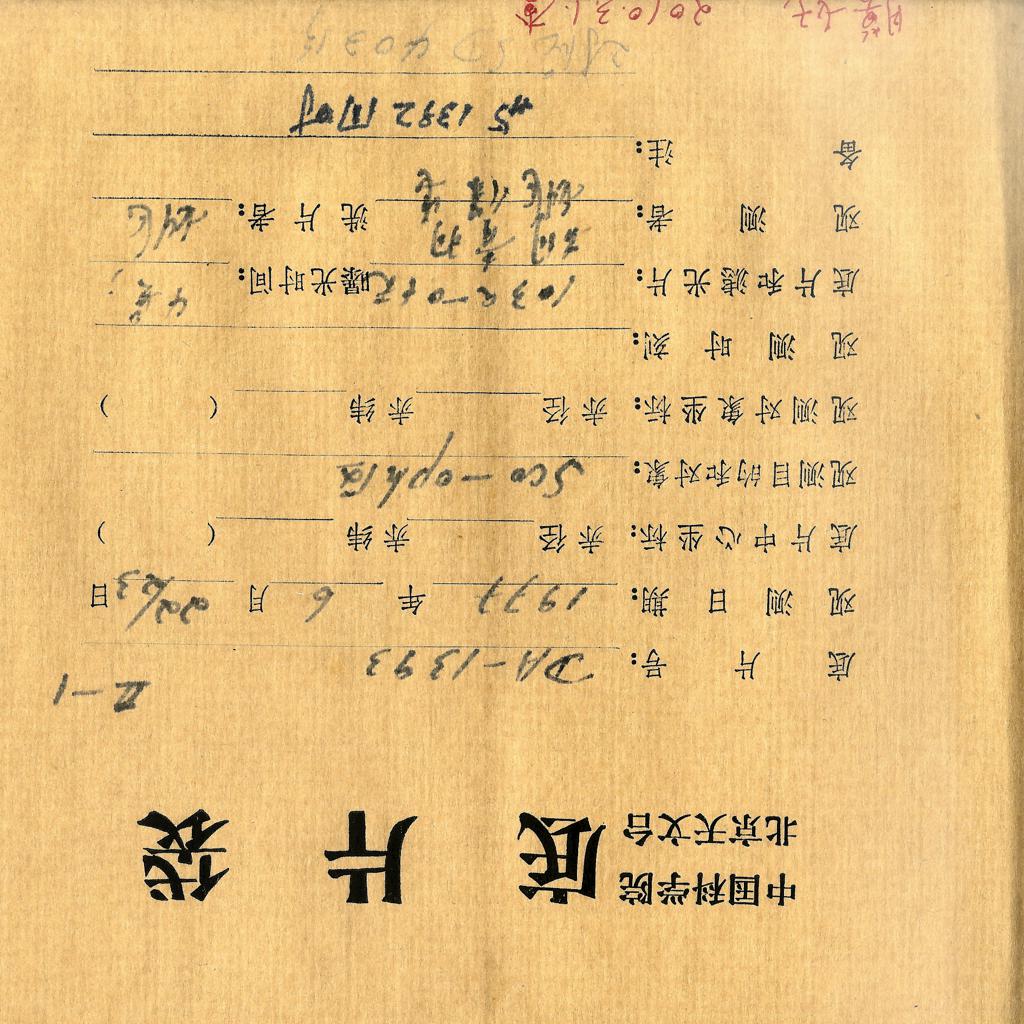 中国科学院
北京天文台
底 片 袋
II-1
底 片 号: DA-1393
观 测 日 期: 1977 年 6 月 22/23 日
底片中心坐标: 赤径 赤纬 ( )
观测目的和对象: Sco-oph
观测对象坐标: 赤径 赤纬 ( )
观 测 时 刻:
底片和滤光片: 103a-O 曝光时间:
观 测 者: 洗 片 者:
备 注:
与1392同时
2010.3.1.